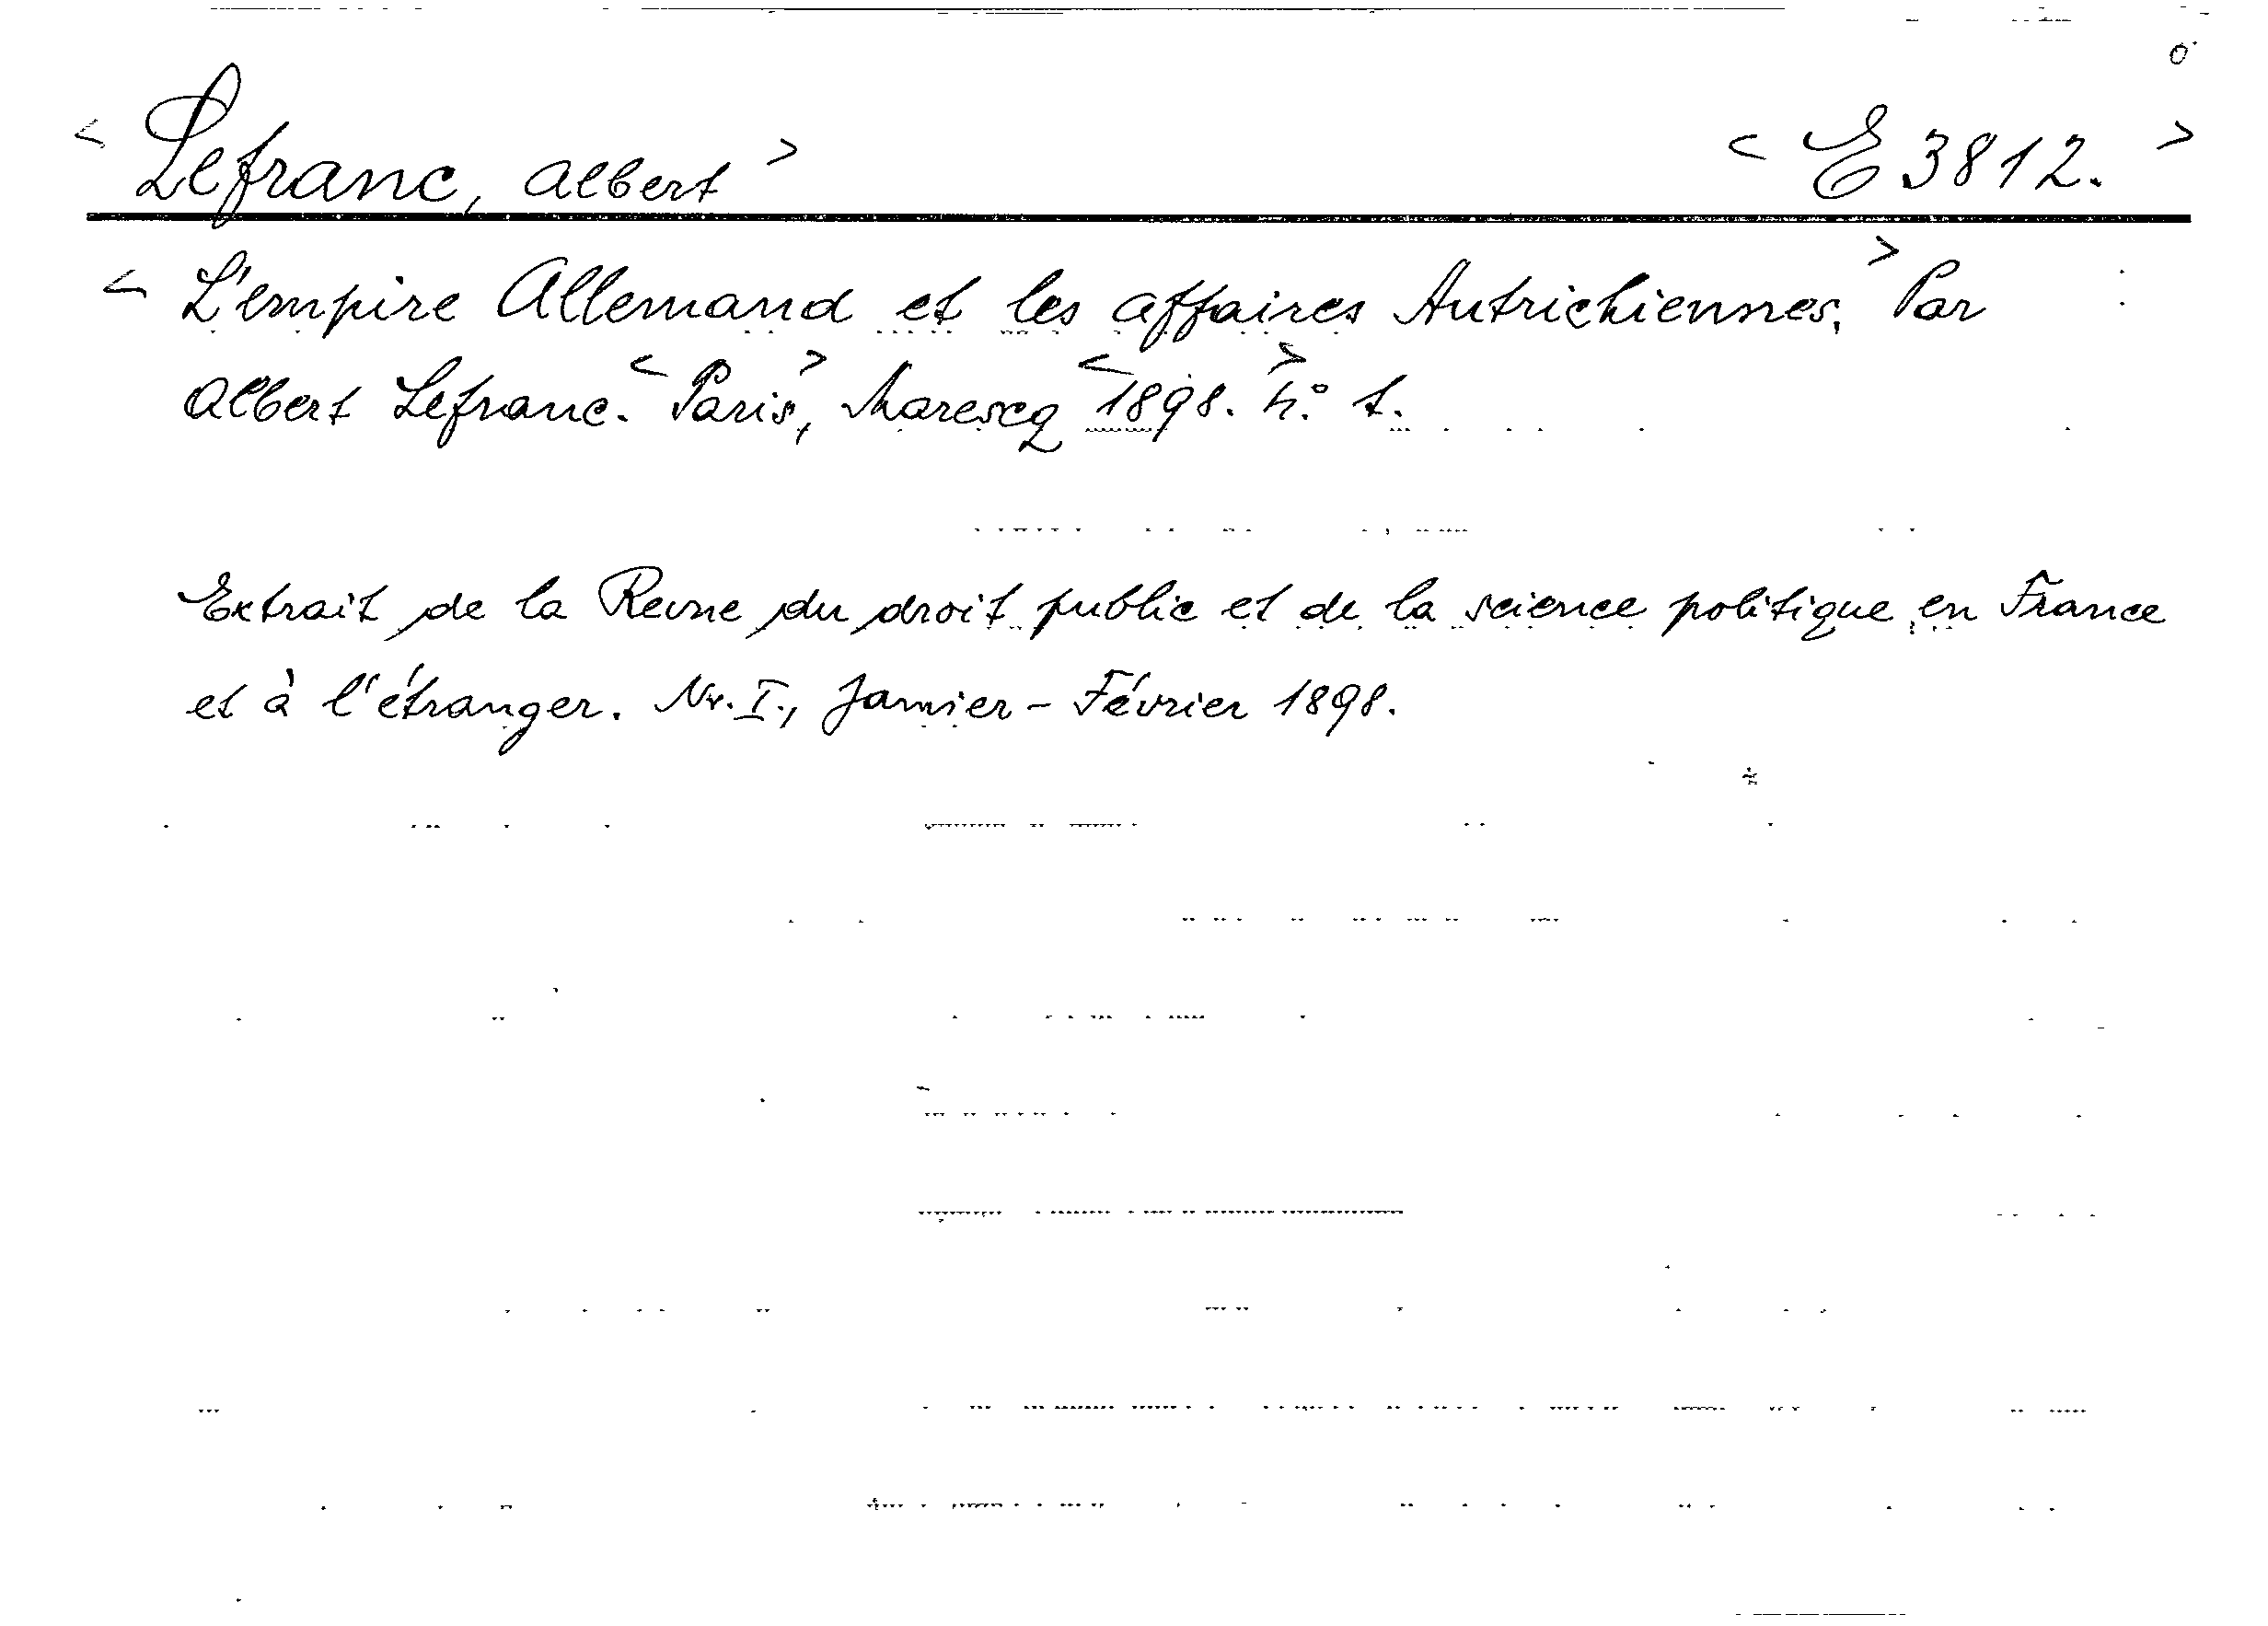 < Lefranc, Albert > < E 3812. >
< L'empire Allemand et les affaires Autrichiennes. > Par
Albert Lefranc. < Paris >, Marescq < 1898. > 4° 1.
Extrait de la Revue du droit public et de la science politique en France
et à l'étranger. Nr. I., Janvier - Février 1898.